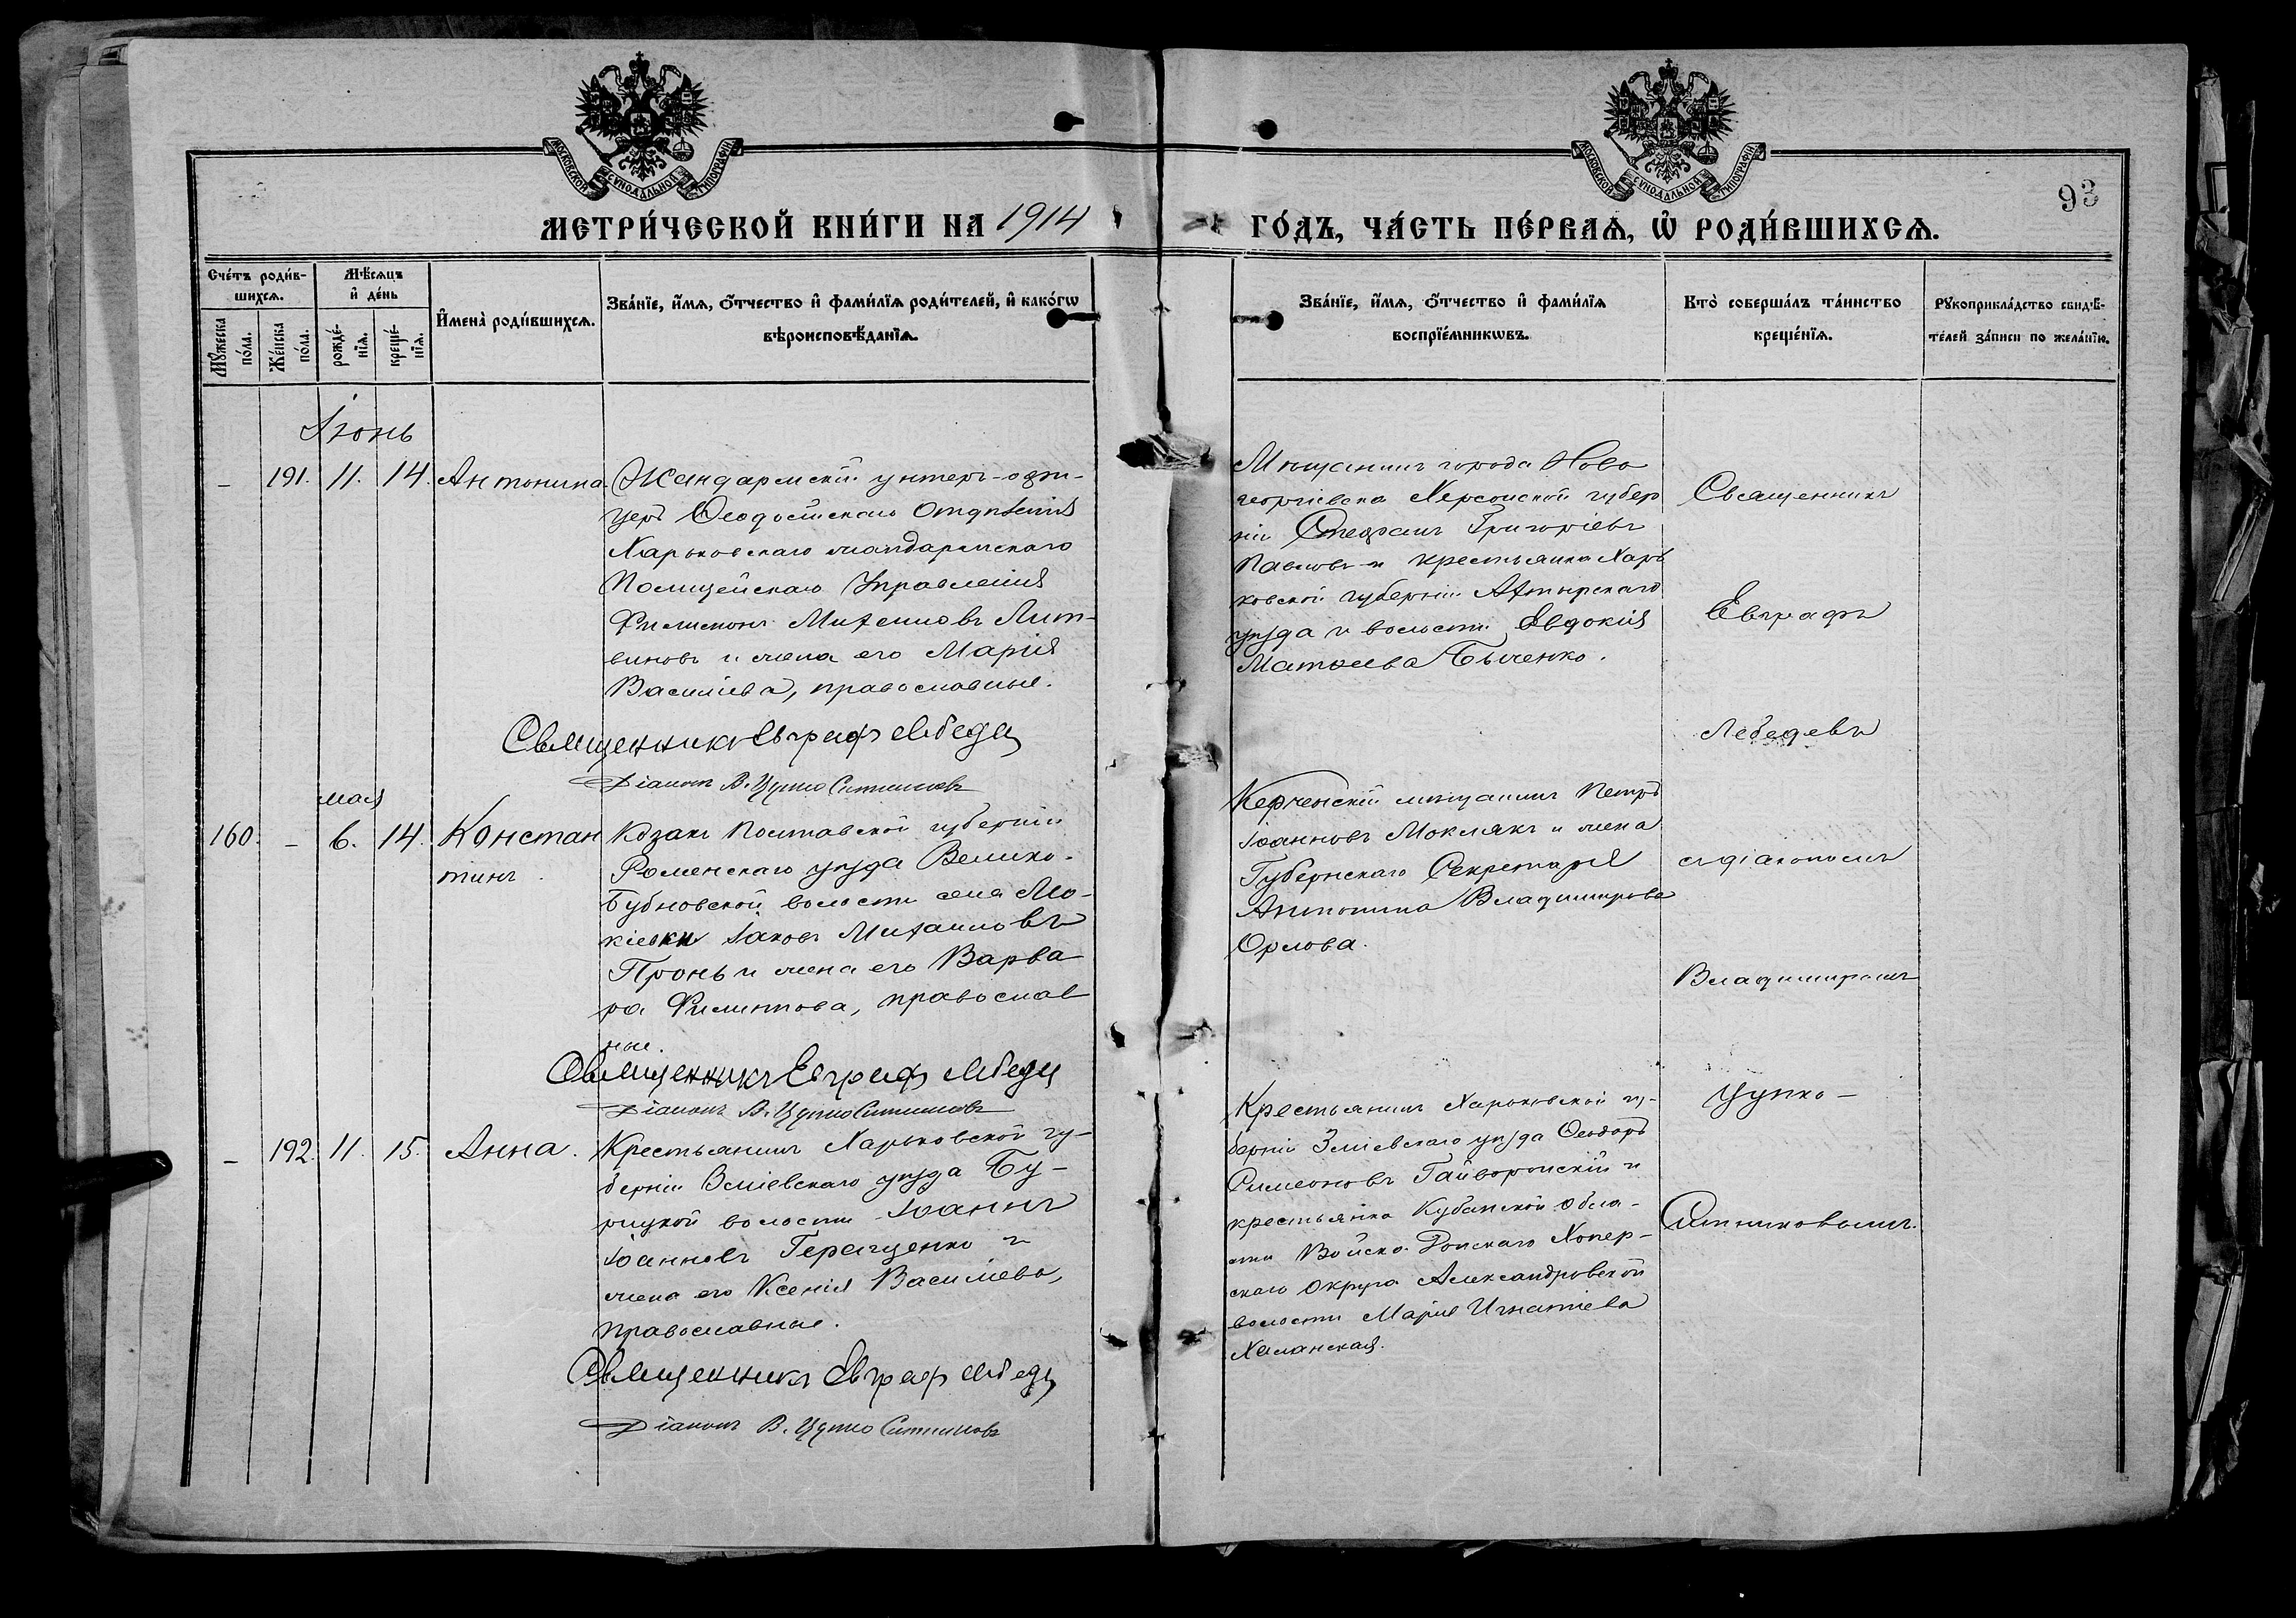 МОСКОВСКОЙ СУНОДАЛЬНОЙ ТИПОГРАФІИ
МОСКОВСКОЙ СУНОДАЛЬНОЙ ТИПОГРАФІИ
93
МЕТРИ́ЧЕСКОЙ КНИ́ГИ НА 1914
ГО́ДЪ, ЧА́СТЬ ПЕ́РВАѦ, Ѡ҆ РОДИ́ВШИХСѦ.
Сче́тъ роди́в-
шихсѧ.
Мѣ́сѧцъ
и҆ де́нь
Мꙋ́жеска
по́ла.
Же́нска
по́ла.
рожде́-
нїѧ.
креще́-
нїѧ.
И҆мена̀ роди́вшихсѧ.
Зва́нїе, и҆́мѧ, ѻ҆́тчество и҆ фами́лїѧ роди́телей, и҆ како́гѡ
вѣроисповѣ́данїѧ.
Зва́нїе, и҆́мѧ, ѻ҆́тчество и҆ фами́лїѧ
воспрїе́мникѡвъ.
Кто̀ соверша́лъ та́инство
креще́нїѧ.
Рꙋкоприкла́дство свидѣ́-
телей за́писи по жела́нїю.
Іюнь
– 191. 11. 14. Антонина
Жандармскій унтеръ-офи-
церъ Ѳеодосійскаго Отдѣленія
Харьковскаго жандармскаго
Полицейскаго Управленія
Филимонъ Михаиловъ Лит-
виновъ и жена его Марія
Василіева, православные.
Священникъ Евграфъ Лебедев
Діаконъ В. Цупко Ситниковъ
Мѣщанинъ города Ново
георгіевска Херсонской губер
ніи Стефанъ Григоріевъ
Павловъ и крестьянка Харь
ковской губерніи Ахтырскаго
уѣзда и волости Евдокія
Матѳеева Быченко.
Священникъ
Евграфъ
Лебедевъ
съ діакономъ
Владиміромъ
Цупко –
Ситниковымъ.
мая
160. – 6. 14. Констан
тинъ
Козакъ Полтавской губерніи
Роменскаго уѣзда Велико-
Бубновской волости села Мо-
кіевки Іаковъ Михаиловъ
Пронь и жена его Варва
ра Филиппова, православ
ные.
Священникъ Евграфъ Лебедев
Діаконъ В. Цупко Ситниковъ
Керченскій мѣщанинъ Петръ
Іоанновъ Моклякъ и жена
Губернскаго Секретаря
Антонина Владимірова
Орлова.
– 192. 11. 15. Анна.
Крестьянинъ Харьковской гу-
берніи Зміевскаго уѣзда Бу-
рлуцкой волости Іоаннъ
Іоанновъ Геращенко и
жена его Ксенія Василіева,
православные.
Священникъ Евграфъ Лебедев
Діаконъ В. Цупко Ситниковъ
Крестьянинъ Харьковской гу-
берніи Зміевскаго уѣзда Ѳеодоръ
Симеоновъ Гайворонскій и
крестьянка Кубанской обла-
сти Войска Донскаго Хопер-
скаго округа Александровской
волости Марія Игнатіева